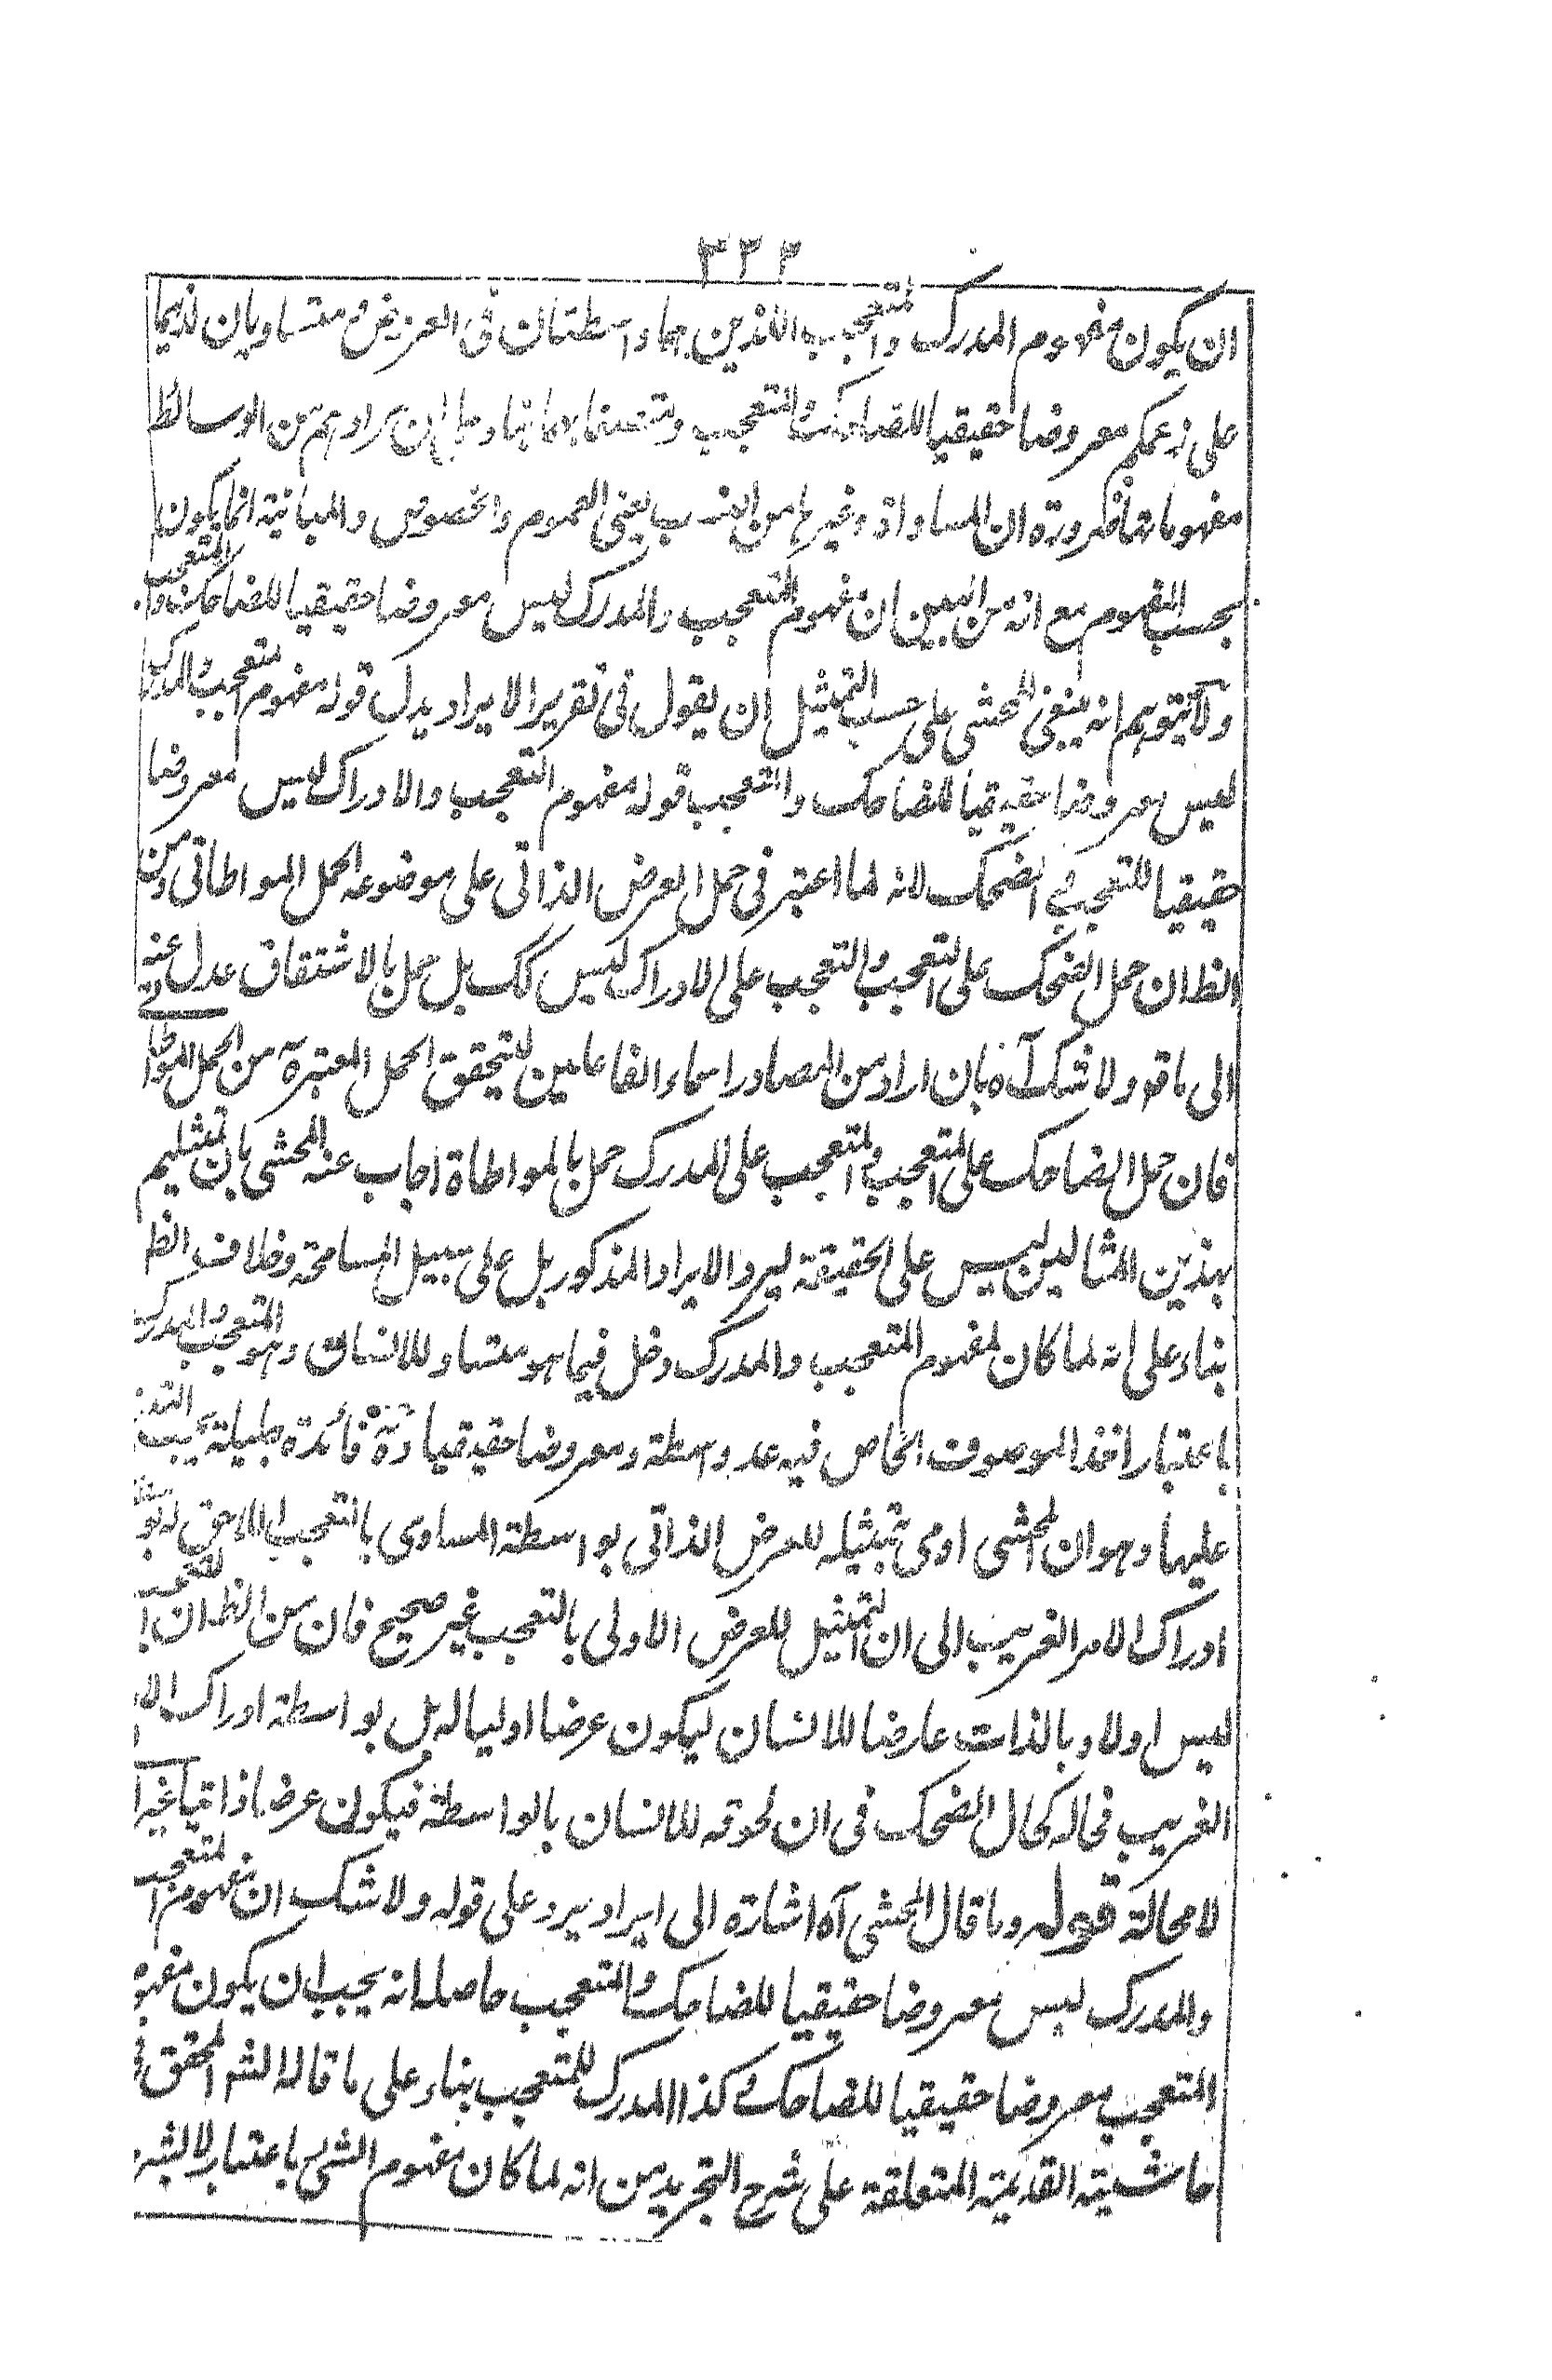 ٣٣٢
ان يكون مفهوم المدرك والمتعجب اللذين هما واسطتان فى العروض متساويان لذيهما
على زعمكم معروضا حقيقيا للضاحك والتعجب ان مرادهم من الوسائط
مفهوماتها ضرورة ان المساواة وغيرها من النسب يعنى العموم والخصوص والمبائنة انما يكون
بحسب المفهوم مع انه من البين ان مفهوم المتعجب والمدرك ليس معروضا حقيقيا للضاحك والمتعجب
ولا يتوهم انه ينبغى للمحشى على حسب التمثيل ان يقول فى تقرير الايراد بدل قوله مفهوم المتعجب والمدرك
ليس معروضا حقيقيا للضاحك والمتعجب قوله مفهوم التعجب والادراك ليس معروضا
حقيقيا للتعجب والضحك لانه لما اعتبر فى حمل العرض الذاتى على موضوعه الحمل المواطاتى ومن
الظ ان حمل الضحك على التعجب والتعجب على الادراك ليس كك بل حمل بالاشتقاق عدل عنه
الى ما قه ولا شك آه بان اراد من المصادر اسماء الفاعلين ليتحقق الحمل المعتبرة من الحمل المواطاتى
فان حمل الضاحك على المتعجب والمتعجب على المدرك حمل بالمواطاة اجاب عنه المحشى بان تمثيلهم
بهذين المثالين ليس على الحقيقة ليرد الايراد المذكور بل على سبيل المسامحة وخلاف الظ
بناء على انه لما كان لمفهوم المتعجب والمدرك دخل فيما هو متساو للانسان وهو المتعجب والمدرك
باعتبار اخذ الموصوف الخاص فيه عد واسطة ومعروضا حقيقيا فائدة جليلة يجب
عليها وهو ان المحشى اومى بتمثيله للعرض الذاتى بواسطة المساوى بالتعجب اللاحق له
ادراك الامر الغريب الى ان التمثيل للعرض الاولى بالتعجب غير صحيح فان من الظ ان التعجب
ليس اولا وبالذات عارضا للانسان ليكون عرضا اوليا له بل بواسطة ادراك
الغريب فحاله كحال الضحك فى ان لحوقه للانسان بالواسطة فيكون عرضا ذاتيا غير
لا محالة قوله وما قال المحشى آه اشارة الى ايراد يرد على قوله ولا شك ان مفهوم المتعجب
والمدرك ليس معروضا حقيقيا للضاحك والمتعجب حاصله انه يجب ان يكون مفهوم
المتعجب معروضا حقيقيا للضاحك وكذا المدرك للمتعجب بناء على ما قاله الشه المحقق فى
حاشيته القديمة المتعلقة على شرح التجريد من انه لما كان مفهوم الشئ باعتبار لا بشرط